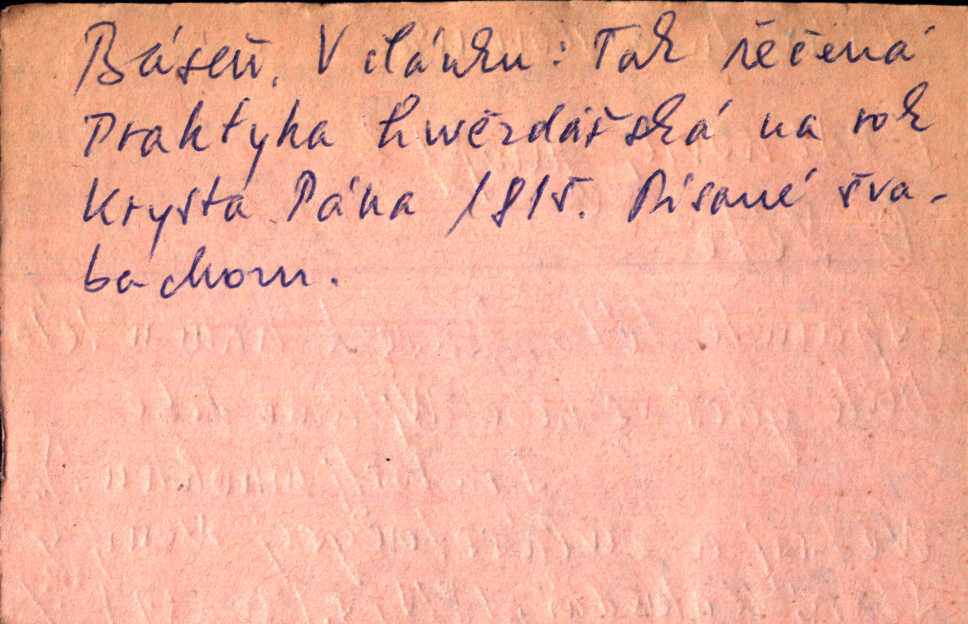 Báseň. V článku: Tak řečená
Praktyka hwězdářská na rok
Krysta Pána 1815. Písané šva-
bachom.